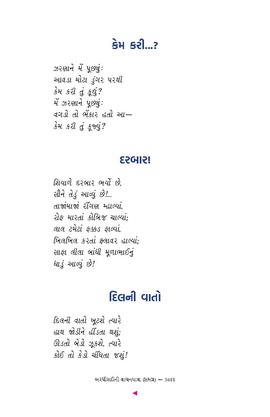 કેમ કરી...?
ઝરણાને મેં પૂછ્યુંઃ
આવડા મોટા ડુંગર પરથી
કેમ કરી તું કૂદ્યું?
મેં ઝરણાને પૂછ્યુંઃ
વગડો તો ભેંકાર હતો આ—
કેમ કરી તું કૂજ્યું?
દરબાર!
શિયાળે દરબાર ભર્યો છે,
સૌને તેડું આવ્યું છે!..
તાજાંમાજાં રીંગણ મ્હાલ્યાં,
રોફ મારતાં કોબિજ ચાલ્યાં;
લાલ ટમેટાં ફક્કડ ફાલ્યાં,
ખિલખિલ કરતાં ફ્લાવર હાલ્યાં;
સાફા લીલા બાંધી મૂળાભાઈનું
ધાડું આવ્યું છે!
દિલની વાતો
દિલની વાતો ખૂટશે ત્યારે
હાથ જોડીને હીંડતા થશું;
ઊડતો બેડો ઝૂકશે, ત્યારે
કોઈ તો કેડો ચીંધતા જશું!